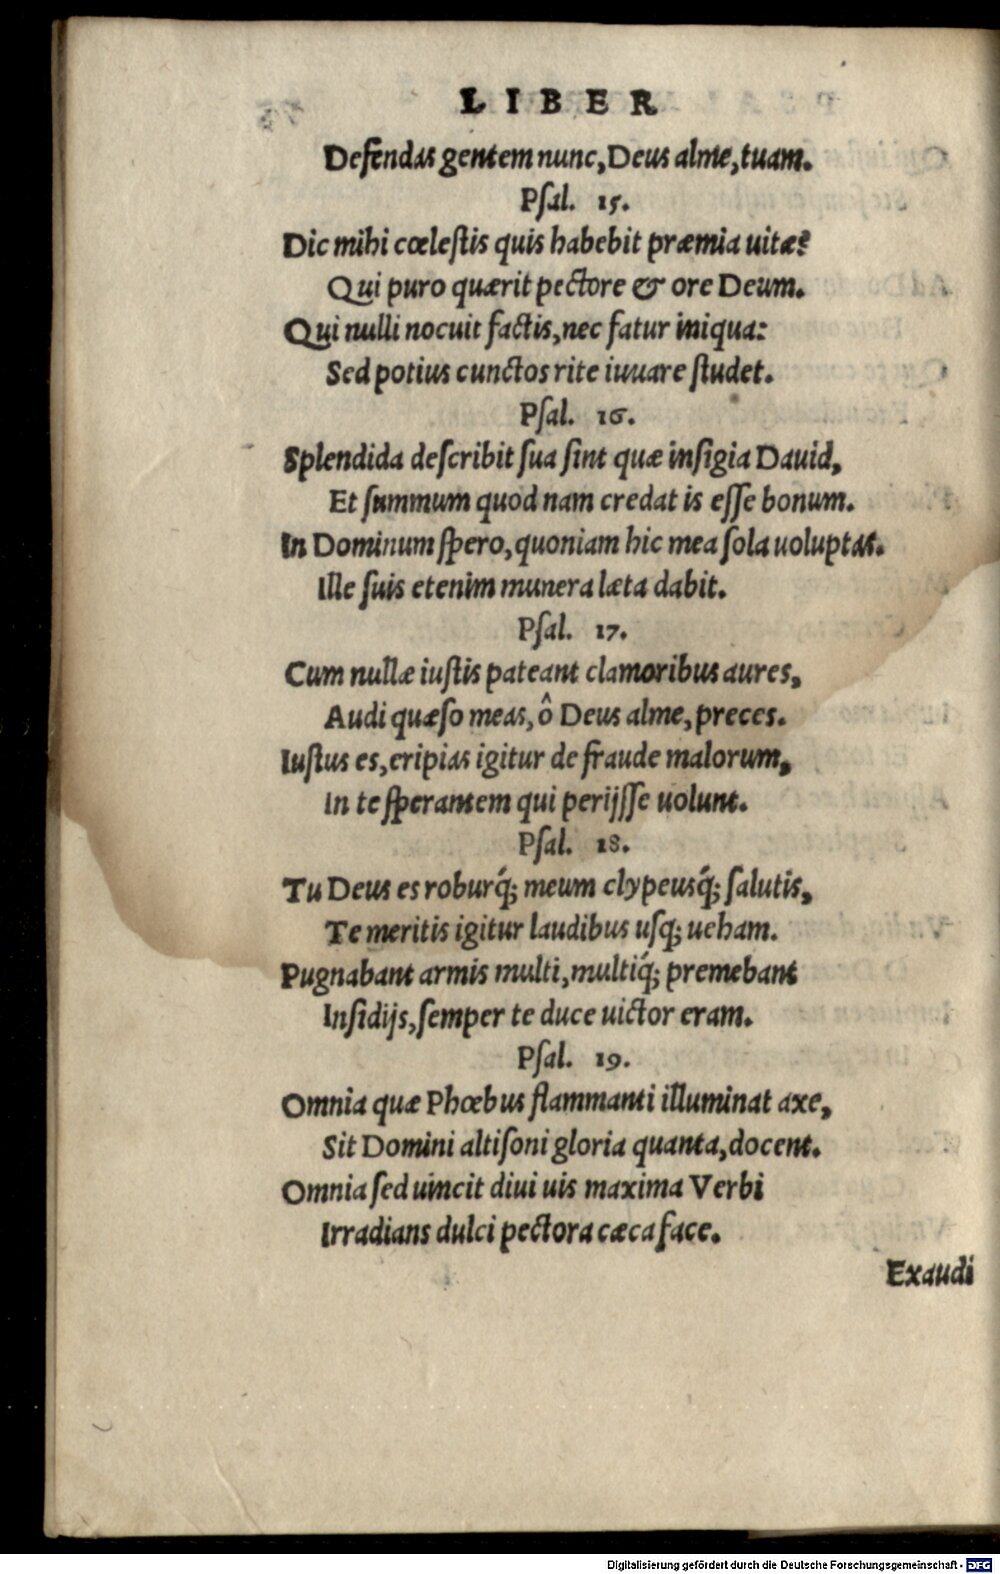 LIBER
Defendas gentem nunc, Deus alme, tuam.
Psal. 15.
Dic mihi cœlestis quis habebit præmia uitæ?
Qui puro quærit pectore & ore Deum.
Qui nulli nocuit factis, nec fatur iniqua:
Sed potius cunctos rite iuuare studet.
Psal. 16.
Splendida describit sua sint quæ insigia Dauid,
Et summum quod nam credat is esse bonum.
In Dominum spero, quoniam hic mea sola uoluptas.
Ille suis etenim munera læta dabit.
Psal. 17.
Cum nullæ iustis pateant clamoribus aures,
Audi quæso meas, ô Deus alme, preces.
Iustus es, eripias igitur de fraude malorum,
In te sperantem qui perijsse uolunt.
Psal. 18.
Tu Deus es roburq́; meum clypeusq́; salutis,
Te meritis igitur laudibus usq; ueham.
Pugnabant armis multi, multiq́; premebant
Insidijs, semper te duce uictor eram.
Psal. 19.
Omnia quæ Phœbus flammanti illuminat axe,
Sit Domini altisoni gloria quanta, docent.
Omnia sed uincit diui uis maxima Verbi
Irradians dulci pectora cæca face.
Exaudi
Digitalisierung gefördert durch die Deutsche Forschungsgemeinschaft - DFG